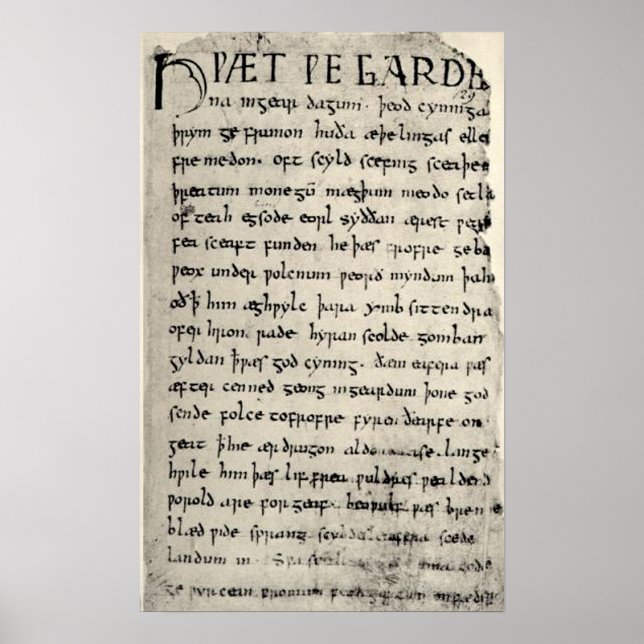 HǷÆT ǷE GARDE
129
na ingear dagum. þeod cyninga
þrym ge frunon huða æþelingas elle
fremedon. oft scyld scefing sceaþe
þreatum monegū mægþum meodo setla
of teah egsode eorl syððan ærest ƿear
fea sceaft funden he þæs frofre geba
ƿeox under ƿolcnum ƿeorð myndum þah
oð ꝥ him æghƿylc þara ymb sittendra
ofer hron rade hyran scolde gomban
gyldan ꝥ ƿæs god cyning. ðæm eafera ƿæs
æfter cenned geong ingeardum þone god
sende folce tofrofre fyren ðearfe on
geat ꝥ hie ær drugon aldor ase. lange
hƿile him þæs lif frea ƿuldres ƿealdend
ƿorold are for geaf. beoƿulf ƿæs breme
blæd ƿide sprang scyldes eafera scede
landum in. Sƿa sceal ma gode
ge ƿyrcean fromum feoh giftum